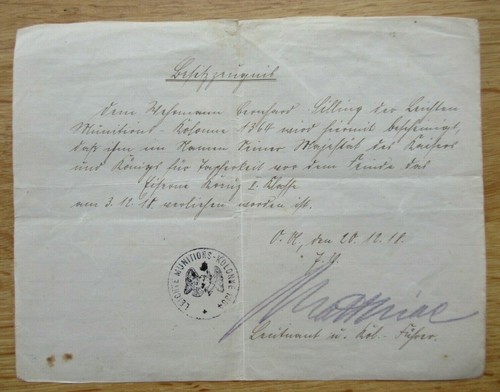 Besitzzeugnis
Dem Wehrmann Bernhard Silling der Leichten
Munitions-Kolonne 1364 wird hiermit bescheinigt,
daß ihm im Namen Seiner Majestät des Kaisers
und Königs für Tapferkeit vor dem Feinde das
Eiserne Kreuz II. Klasse
am 3.12.18 verliehen worden ist.
O.U., den 20.12.18.
LEICHTE MUNITIONS-KOLONNE 1364
Leutnant u. Kol. Führer.